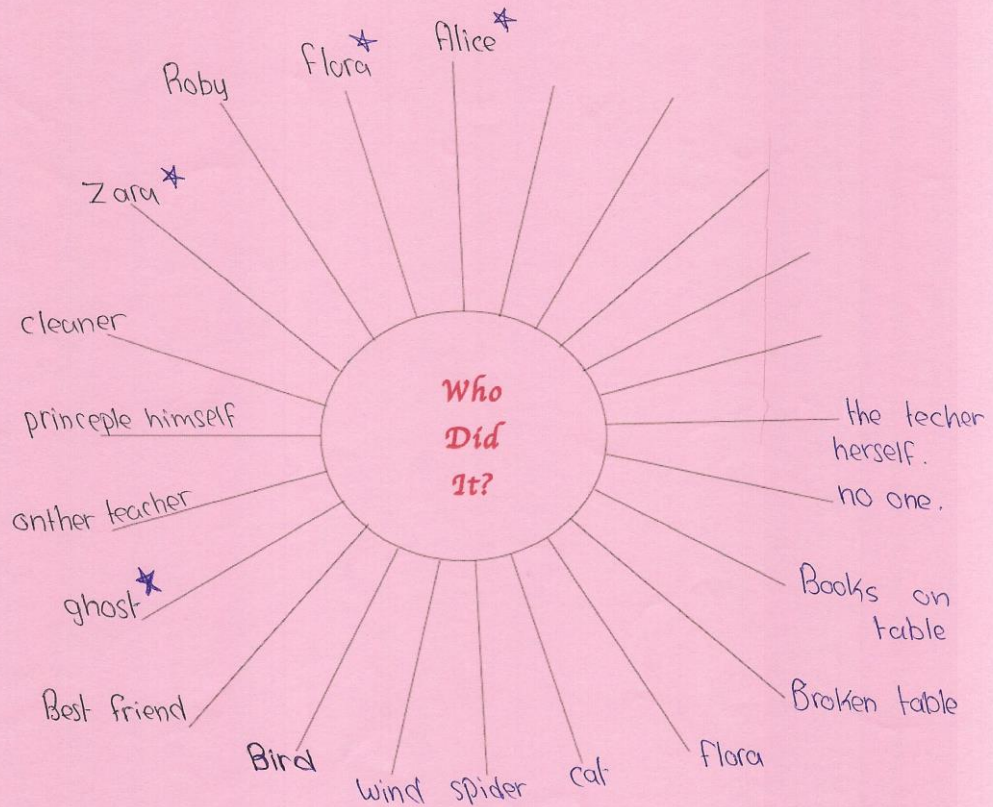 Alice
Flora
Roby
Zara
cleaner
princeple himself
onther teacher
ghost
Best friend
Bird
wind
spider
cat
flora
Broken table
Books on
table
no one.
the techer
herself.
Who
Did
It?